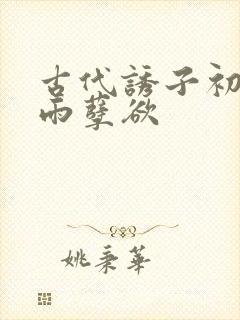 古代誘子初
雨孽欲
姚秉華